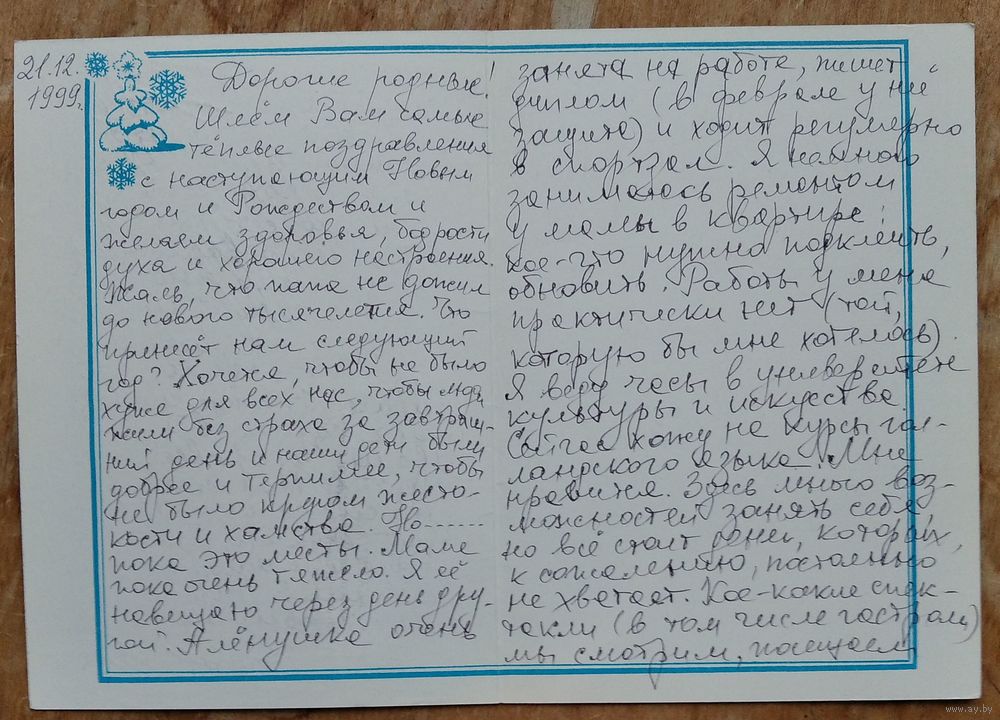 21.12.
1999г.
Дорогие родные!
Шлём Вам самые
тёплые поздравления
с наступающим Новым
годом и Рождеством и
желаем здоровья, бодрости
духа и хорошего настроения.
Жаль, что папа не дожил
до нового тысячелетия. Что
принесёт нам следующий
год? Хочется, чтобы не было
хуже для всех нас, чтобы люди
жили без страха за завтраш-
ний день и наши дети были
добрее и терпимее, чтобы
не было кругом жесто-
кости и хамства. Но------
пока это мечты. Маме
пока очень тяжело. Я её
навещаю через день дру-
гой. Алёнушка очень
занята на работе, пишет
диплом (в феврале у неё
защита) и ходит регулярно
в спортзал. Я немного
занимаюсь ремонтом
у мамы в квартире:
кое-что нужно подклеить,
обновить. Работы у меня
практически нет (той,
которую бы мне хотелось).
Я веду часы в университете
культуры и искусства.
Сейчас хожу на курсы гол-
ландского языка. Мне
нравится. Здесь много воз-
можностей занять себя,
но всё стоит денег, которых,
к сожалению, постоянно
не хватает. Кое-какие спек-
такли (в том числе гастрол.)
мы смотрим, посещаем
www.ay.by